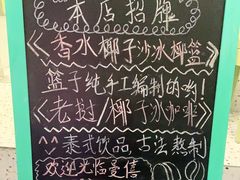 本店招牌
《香水椰子沙冰椰篮
篮子纯手工编制的哟!
《老挝/椰子冰咖啡》
^^泰式饮品,古法熬制
欢迎光临曼信